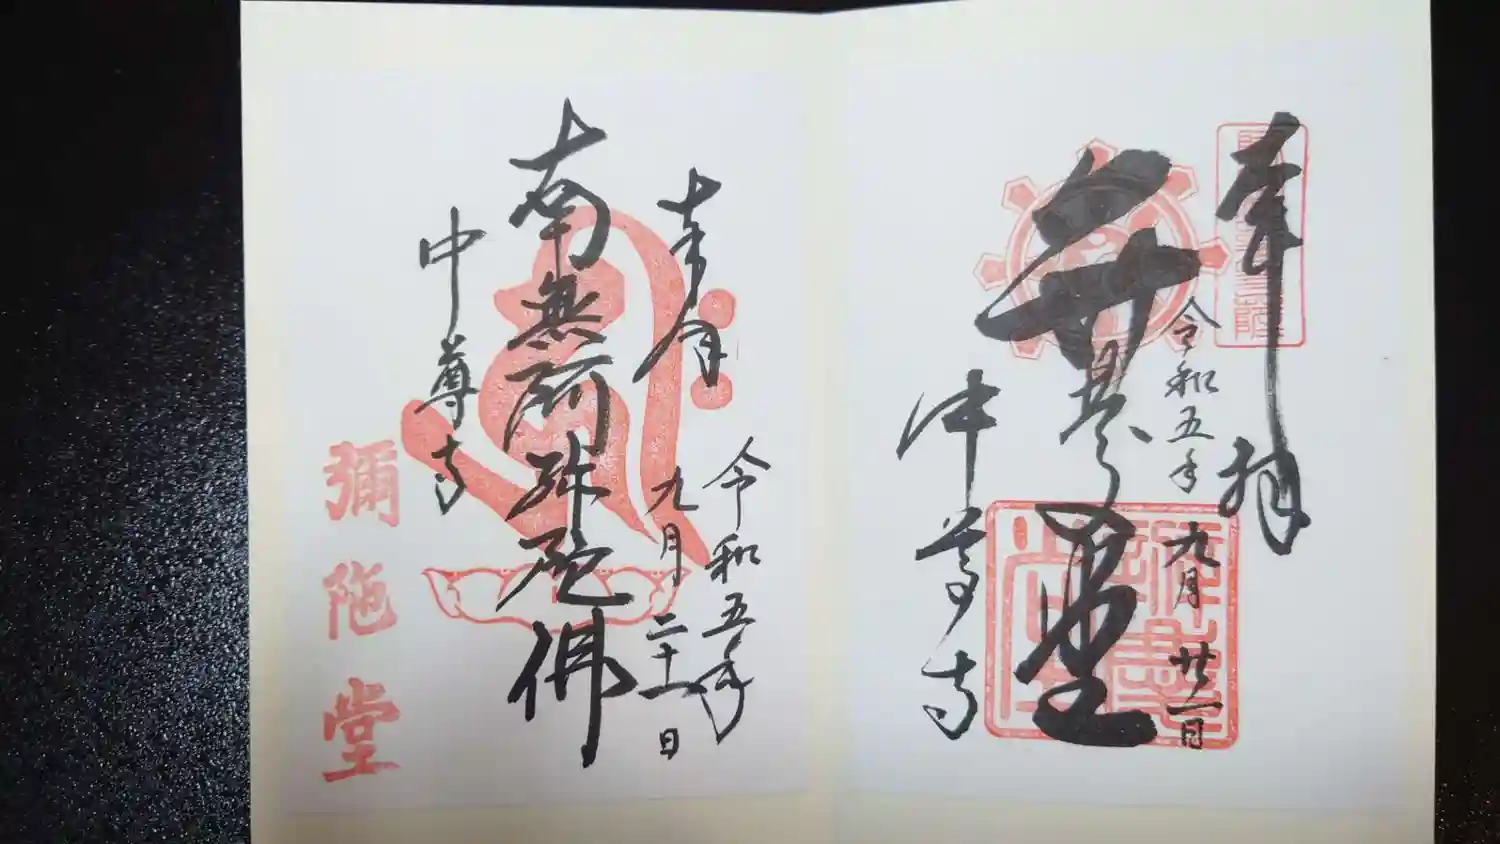 奉拝
令和五年
九月廿一日
弁慶堂
中尊寺
令和五年
九月二十一日
南無阿弥陀佛
中尊寺
彌陁堂